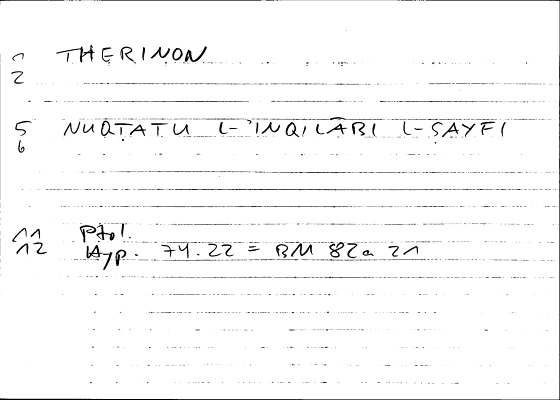 1 THERINON
2
5 NUQṬATU L-ʾINQILĀBI L-ṢAYFĪ
6
11 Ptol.
12 Hyp. 74.22 = BM 82a 21